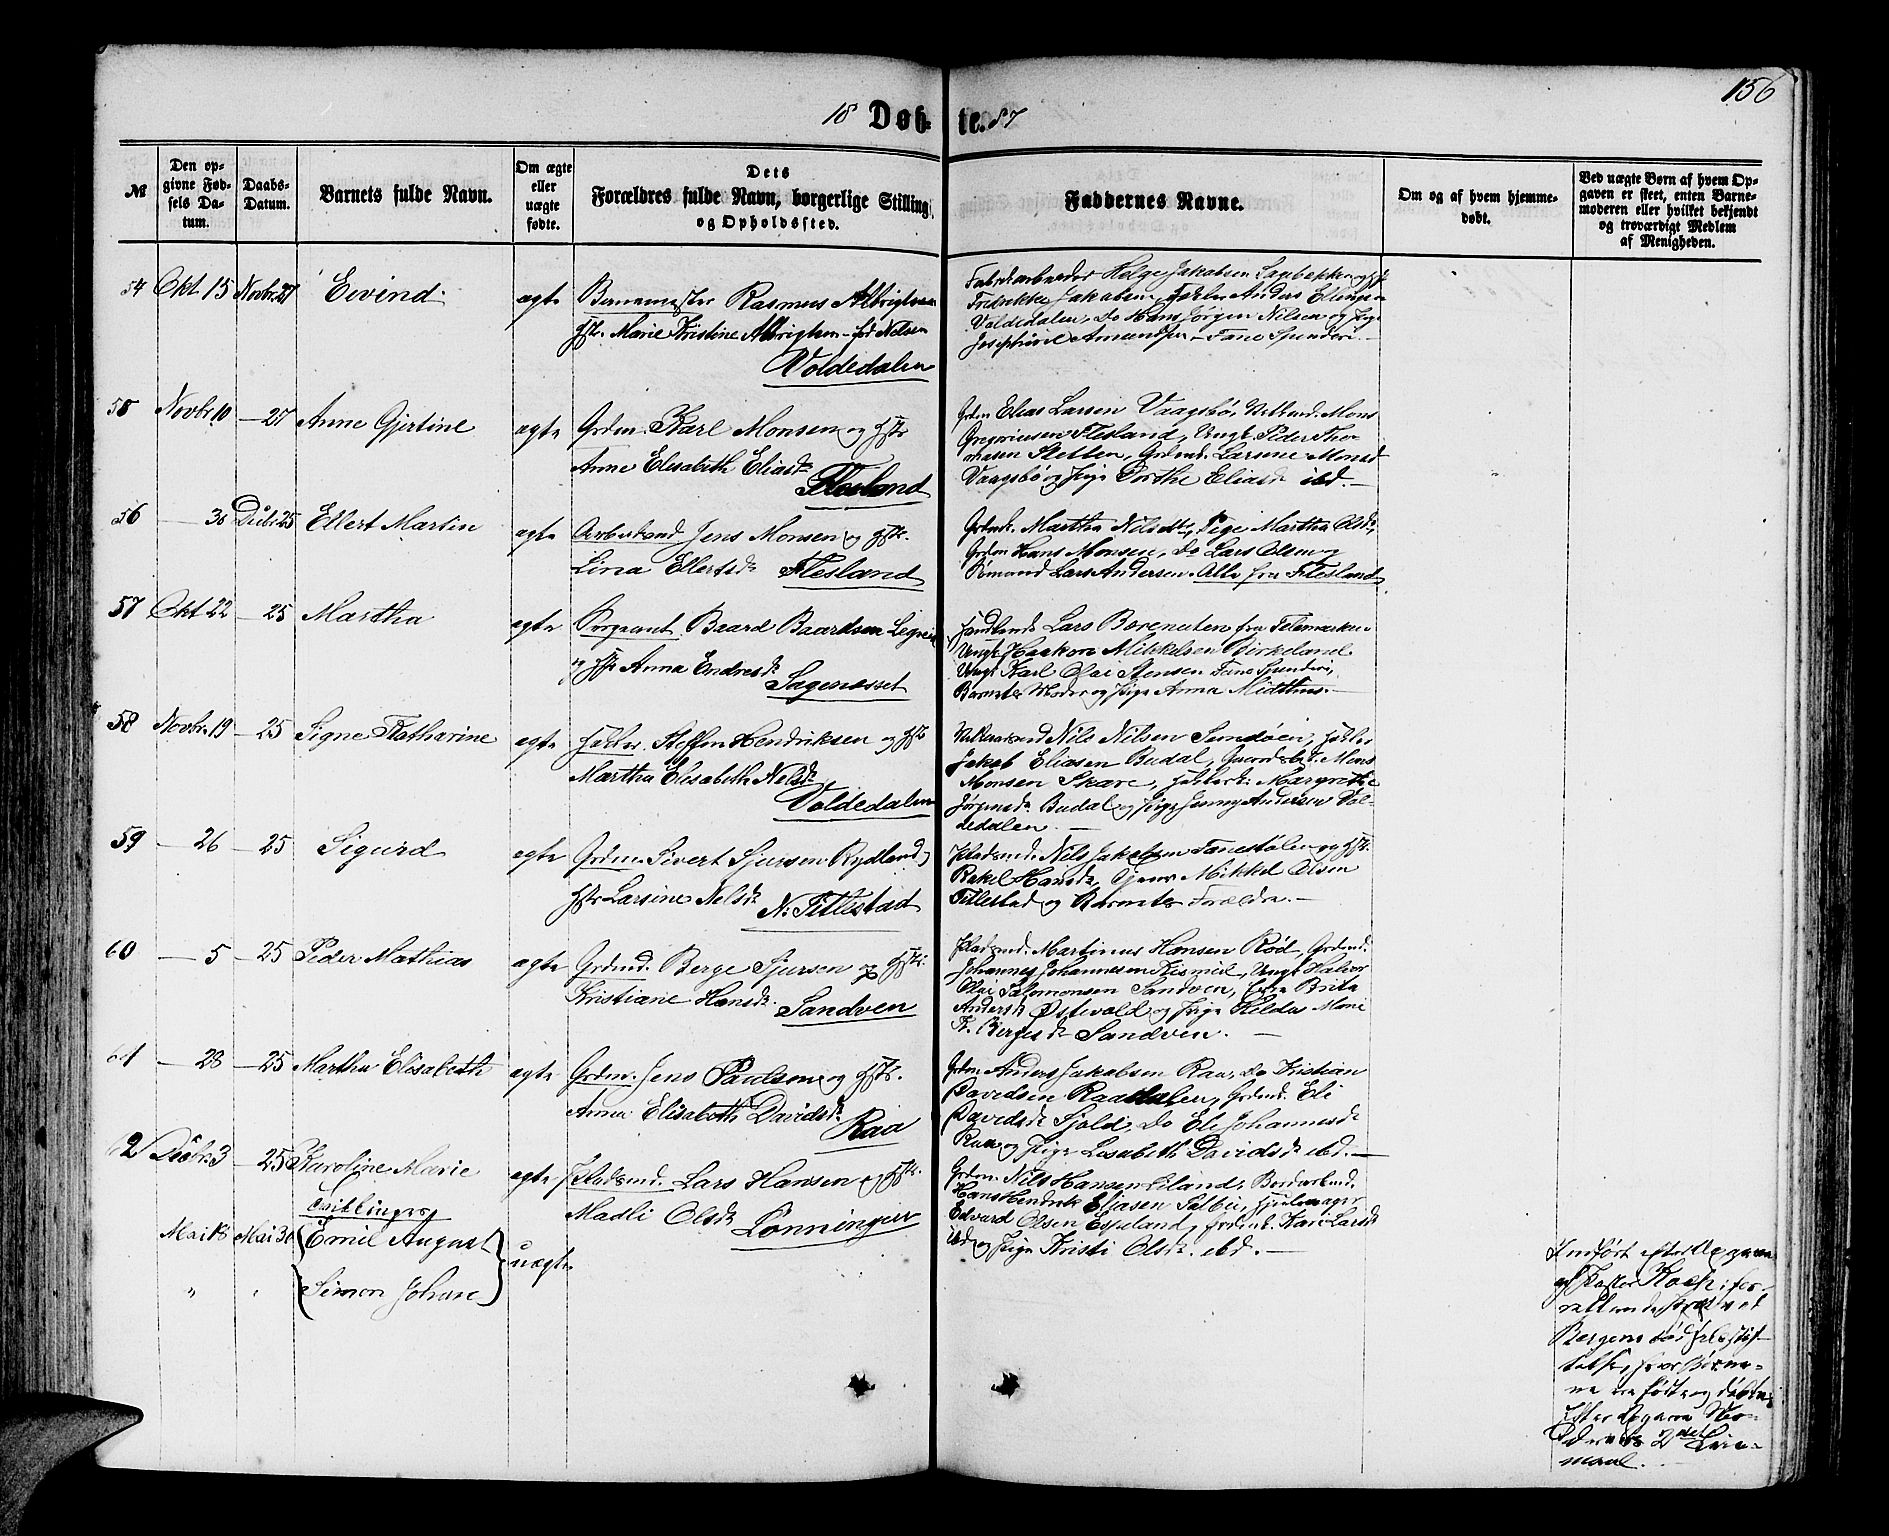 156
18 Døb- te. 87
№
Den op-
givne Fød-
sels Da-
tum.
Daabs-
Datum.
Barnets fulde Navn.
Om ægte
eller
uægte
fødte.
Dets
Forældres fulde Navn, borgerlige Stilling
og Opholdssted.
Faddernes Navne.
Om og af hvem hjemme-
døbt.
Ved uægte Børn af hvem Op-
gaven er skeet, enten Barne-
moderen eller hvilket bekjendt
og troværdigt Medlem
af Menigheden.
54 Okt 15 Novbr. 27 Eivind ægte Rasmus
Hstr. Marie Kristine Albrigtsen - fød Nelsen
Voldedalen
Fabrikarbeider Helge Jakobsen
Fredrikke Jakobsen, Anders Ellingsen
Voldedalen, Do Hans Jørgen Nilsen og Pige
Josephine Amundsen - Fane Spinderi. -
55 Novbr. 10 - 27 Anne Gjertine ægte Grdm. Karl Monsen og Hstr
Anne Elisabeth Eliasdr.
Flesland
Grdm Elias Larsen Vaagsbø, Mons
Gregoriussen Flesland, Ungk. Peder Tho-
masen Sletten, Grdmk. Larsine Monsd
Vaagsbø og Pige Dorthe Eliasdr ibd. -
56 - 30 Decbr. 25 Ellert Martin ægte Arbeidsmd Jens Monsen og Hstr.
Lina Ellertsdr. Flesland
Grdmk. Martha Nilsdtr, Pige Martha Olsdr,
Grdm Hans Monsen, Do Lars Olsen og
Sømand Lars Andersen. Alle fra Flesland
57 Okt 22 - 25 Martha ægte Sergeant Baard Baardsen
og Hstr Anna Endresdr.
Sagenæsset
Lars fra Telemarken
Ungk Haakon Mikkelsen Birkeland
Ungk Karl Olai Stensen Fane Spinderi,
Barnets Moder og Pige Anna Midttun. -
58 Novbr. 19 - 25 Signe Katharine ægte Steffen Hendriksen og Hstr
Martha Elisabeth Nelsdr.
Voldedalen
Nils Nilsen Sundøen,
Jakob Eliasen Budal, Mons
Monsen Skare, Margrethe
Jørgensdr. Budal og Pige Jenny Andersen Vol-
dedalen. -
59 - 26 - 25 Sigurd ægte Grdm. Sivert Sjursen Rydland,
Hstr Larsine Nelsdr. N. Titlestad
Pladsmd. Nils Jakobsen og Hstr.
Rakel Hansdr, Mikkel Olsen
Titlestad og Barnets Forældre. -
60 - 5 - 25 Peder Mathias ægte Grdmd. Berge Sjursen og Hstr.
Kristiane Hansdr. Sandven
Pladsmd. Martinus Hansen Rød, Grdmd.
Johannes Johannesen Ungk Halvor
Olai Salomonsen Sandven, Brita
Andersdr Østevold og Pige Helda Marie
Bergesdr Sandven. -
61 - 28 - 25 Martha Elisabeth ægte Grdm. Jens Paulsen og Hstr.
Anna Elisabeth Davidsdr.
Raa
Grdm. Anders Jakobsen Raa, Do Kristian
Davidsen Raadalen, Grdmk. Eli
Davidsdr Sjold, Do Eli Johannesdr
Raa og Pige Lisabeth Davidsdr ibd. -
62 Decbr. 3 - 25 Karoline Marie ægte Pladsmd. Lars Hansen og Hstr.
Madli Olsdr. Lønningen
Grdm. Nils Hansen Eiland,
Hans Hendrik Eliasen Hjulmager
Edvard Olsen Espeland, Grdmk. Kari Larsdr
ibd og Pige Kristi Olsdr. ibd. -
Tvillinger
Mai 18 Mai 30 Emil August uægte
" " Simon Johan
Indført efter Opgave
af Pastor Koch,
Præst ved
Bergens Fødselsstif-
telse, hvor Børne-
ne ere fødte og døbte.
Efter Opgave Mo-
derens 2det Leier-
maal.